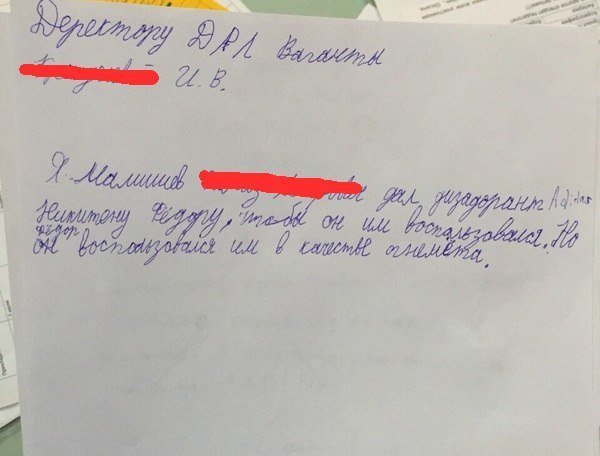 Деректору ДАЛ Ваганты
И.В.
Я. Малышев дал дизадорант Adidas
Никитену Фёдору, чтобы он им воспользовался. Но
фёдор
он воспользовался им в качестве огнемёта.